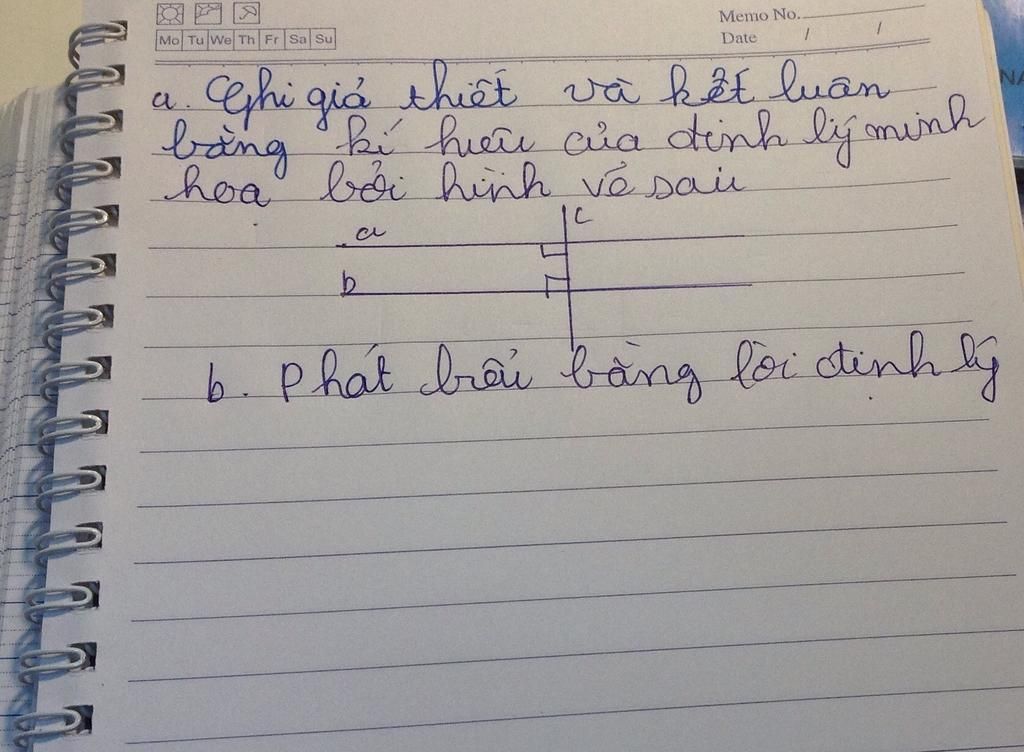 Memo No.
Mo Tu We Th Fr Sa Su
Date / /
a. Ghi giả thiết và kết luân
bằng kí hiêu của đinh lý minh
hoa bởi hình vẽ sau
c
a
b
b. Phát biểu bằng lời đinh lý